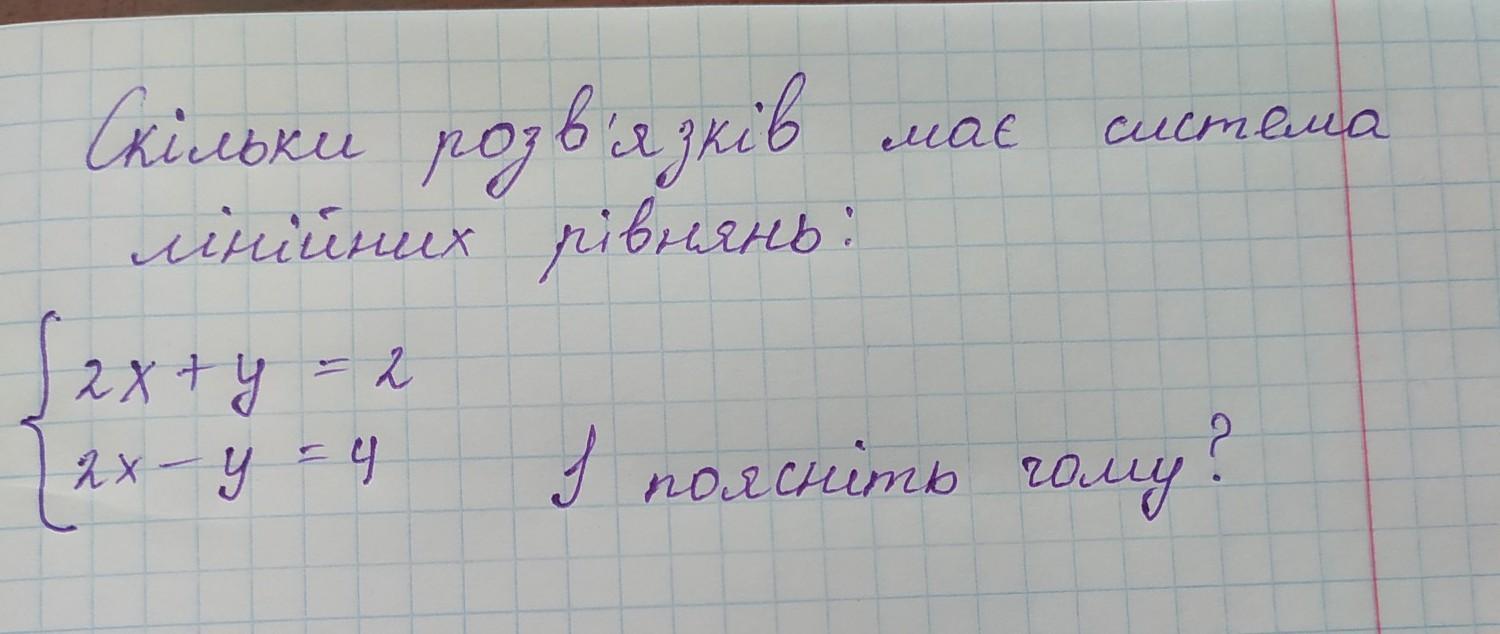 Скільки розв'язків має система
лінійних рівнянь:
2x + y = 2
2x - y = 4 І поясніть чому?